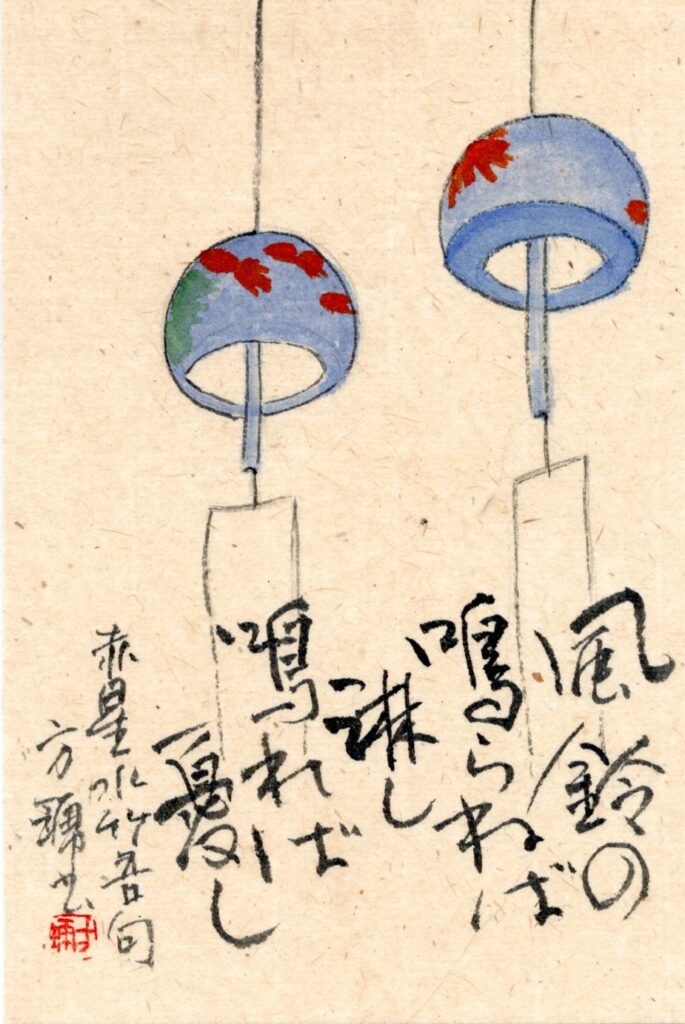 風鈴の
鳴らねば
淋し
鳴れば
憂し
赤星水竹居句
方